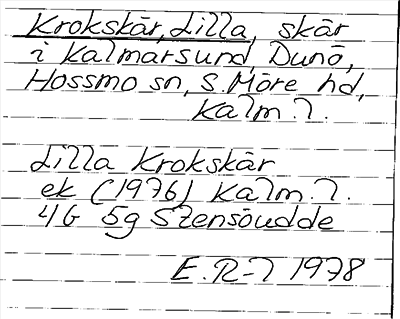 Krokskär, Lilla, skär
i Kalmarsund, Dunö,
Hossmo sn, S. Möre hd,
Kalm. l.
Lilla Krokskär
ek (1976) Kalm. l.
4G 5g Stensöudde
E. R-l 1978